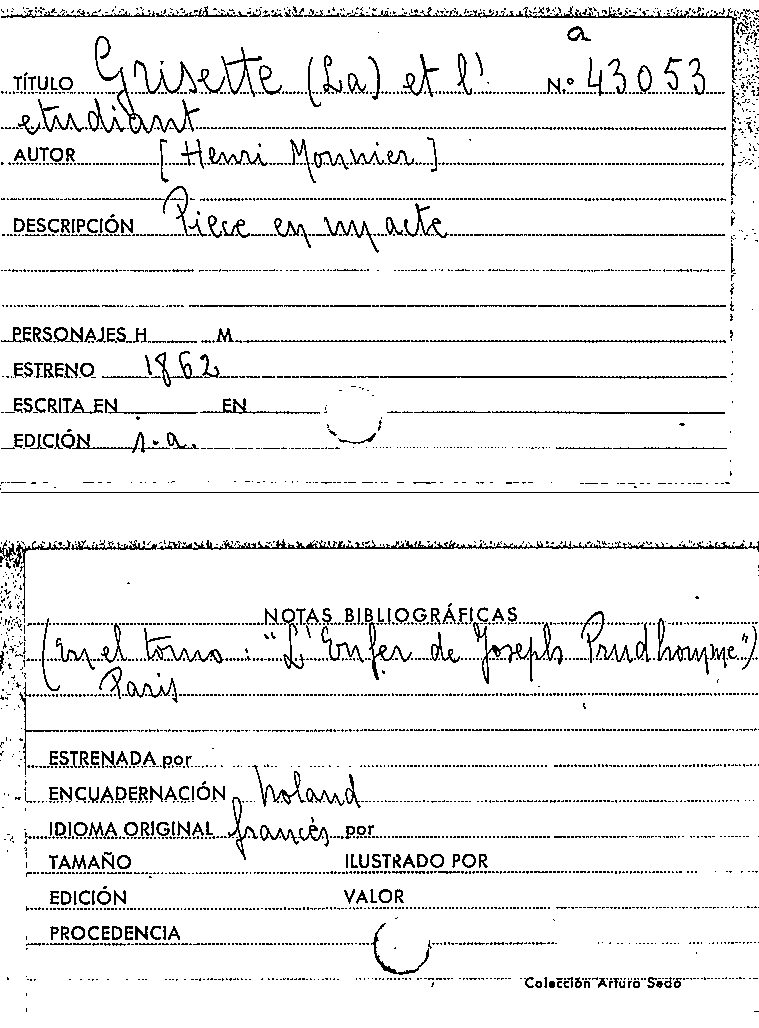 a
TÍTULO Grisette (La) et l' N.º 43053
etudiant
AUTOR [Henri Monnier]
DESCRIPCIÓN Piece en un acte
PERSONAJES H M
ESTRENO 1862
ESCRITA EN EN
EDICIÓN s.a.
NOTAS BIBLIOGRÁFICAS
(En el tomo: "L'Enfer de Joseph Prudhomme")
Paris
ESTRENADA por
ENCUADERNACIÓN holand
IDIOMA ORIGINAL francés por
TAMAÑO ILUSTRADO POR
EDICIÓN VALOR
PROCEDENCIA
Colección Arturo Sedó